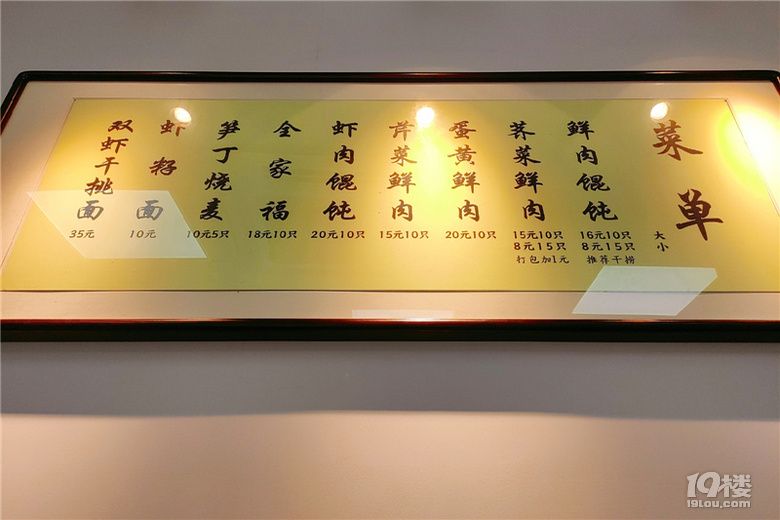 菜单
大
小
鲜肉馄饨
16元10只
8元15只
推荐干捞
荠菜鲜肉
15元10只
8元15只
打包加1元
蛋黄鲜肉
20元10只
芹菜鲜肉
15元10只
虾肉馄饨
20元10只
全家福
18元10只
笋丁烧麦
10元5只
虾籽面
10元
双虾干挑面
35元
19楼
19lou.com